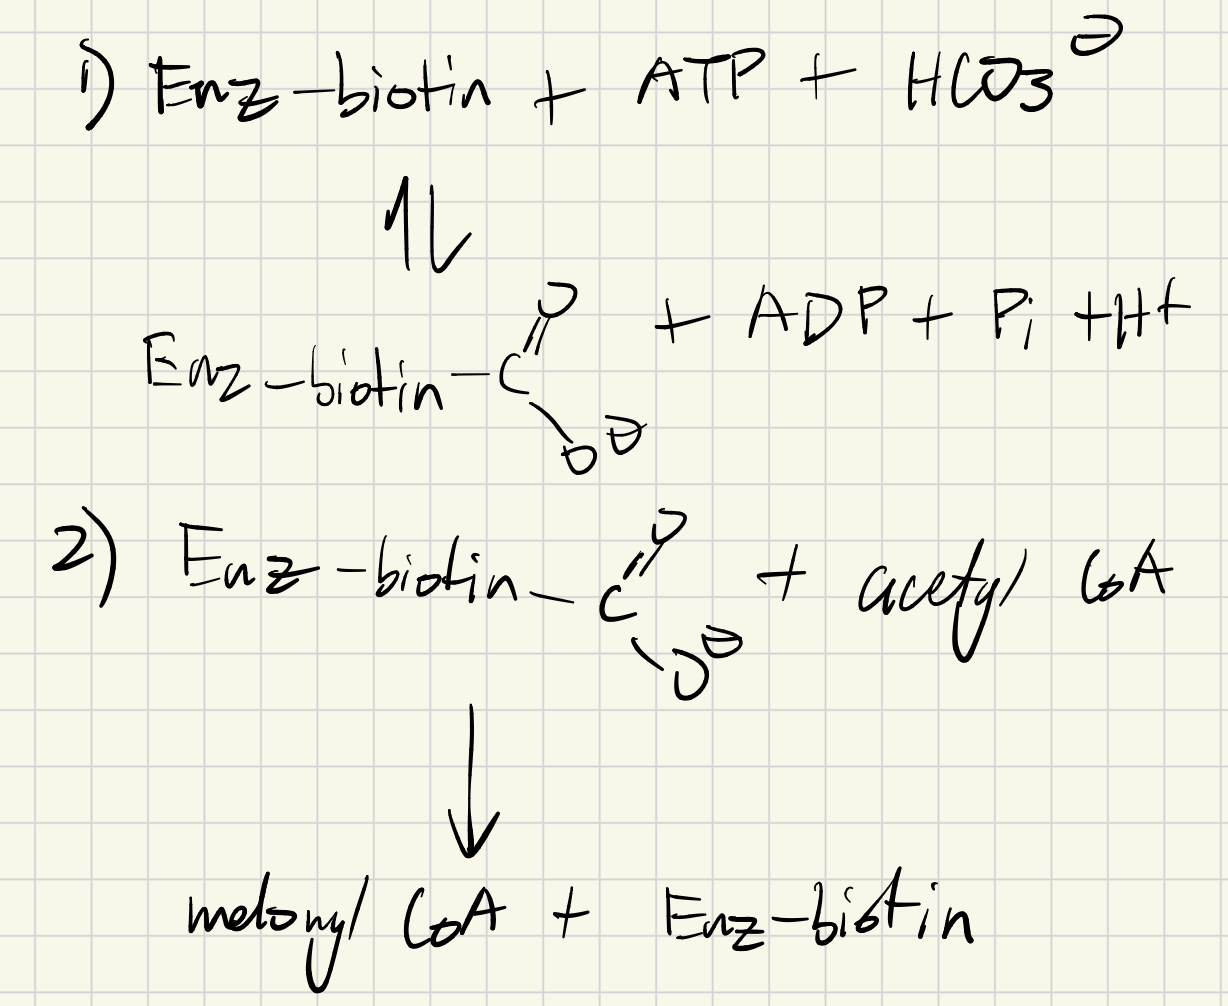 1) Enz-biotin + ATP + HCO3⊖
⇅
Enz-biotin-C(=O)O⊖ + ADP + Pi + H+
2) Enz-biotin-C(=O)O⊖ + acetyl CoA
↓
melonyl CoA + Enz-biotin